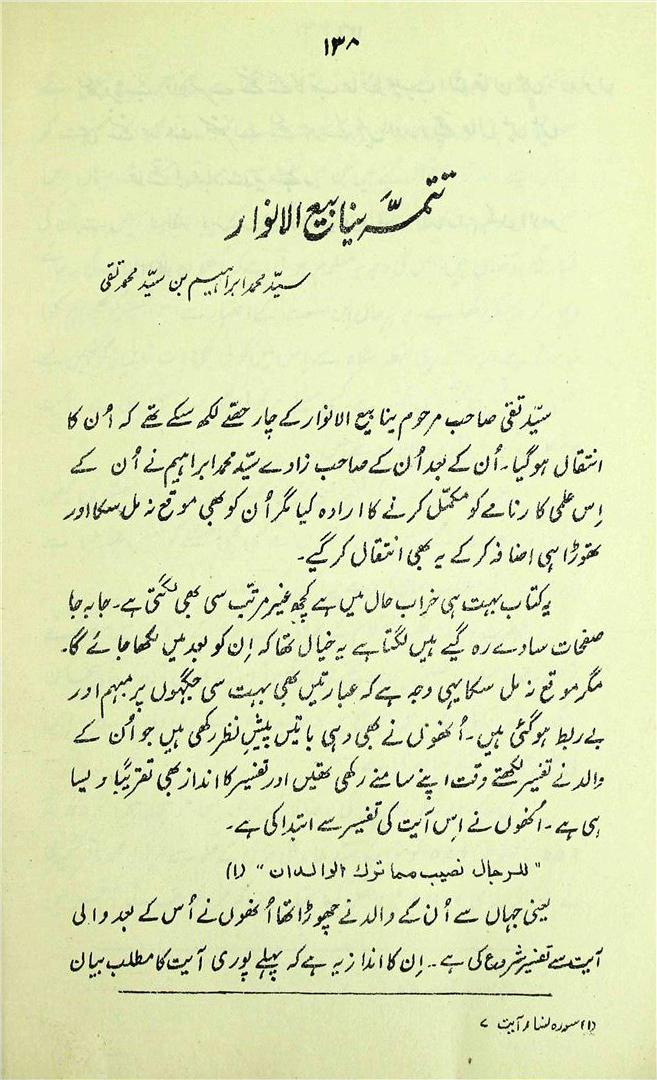 ۱۳۸
تتمہّ ینابیع الانوار
سیّد محمد ابراہیم بن سیّد محمد تقی
سیّد تقی صاحب مرحوم ینابیع الانوار کے چار حصّے لکھ سکے تھے کہ اُن کا
انتقال ہوگیا۔ اُن کے بعد اُن کے صاحب زادے سیّد محمد ابراہیم نے اُن کے
اِس علمی کارنامے کو مکمّل کرنے کا ارادہ کیا مگر اُن کو بھی موقع نہ مل سکا اور
تھوڑا ہی اضافہ کرکے یہ بھی انتقال کر گیے۔
یہ کتاب بہت ہی خراب حال میں ہے کچھ غیر مرتّب سی بھی لگتی ہے۔ جا بہ جا
صفحات سادے رہ گیے ہیں لگتا ہے یہ خیال تھا کہ اِن کو بعد میں لکھا جائے گا۔
مگر موقع نہ مل سکا یہی وجہ ہے کہ عبارتیں بھی بہت سی جگہوں پر مبہم اور
بے ربط ہوگئی ہیں۔ اُنھوں نے بھی وہی باتیں پیشِ نظر رکھی ہیں جو اُن کے
والد نے تفسیر لکھتے وقت اپنے سامنے رکھی تھیں اور تفسیر کا انداز بھی تقریبًا ویسا
ہی ہے۔ اُنھوں نے اِس آیت کی تفسیر سے ابتدا کی ہے۔
"للرجال نصیب مما ترک الوالدان" (۱)
یعنی جہاں سے اُن کے والد نے چھوڑا تھا اُنھوں نے اُس کے بعد والی
آیت سے تفسیر شروع کی ہے۔ اِن کا انداز یہ ہے کہ پہلے پوری آیت کا مطلب بیان
(۱) سورہ نساء آیت ۷